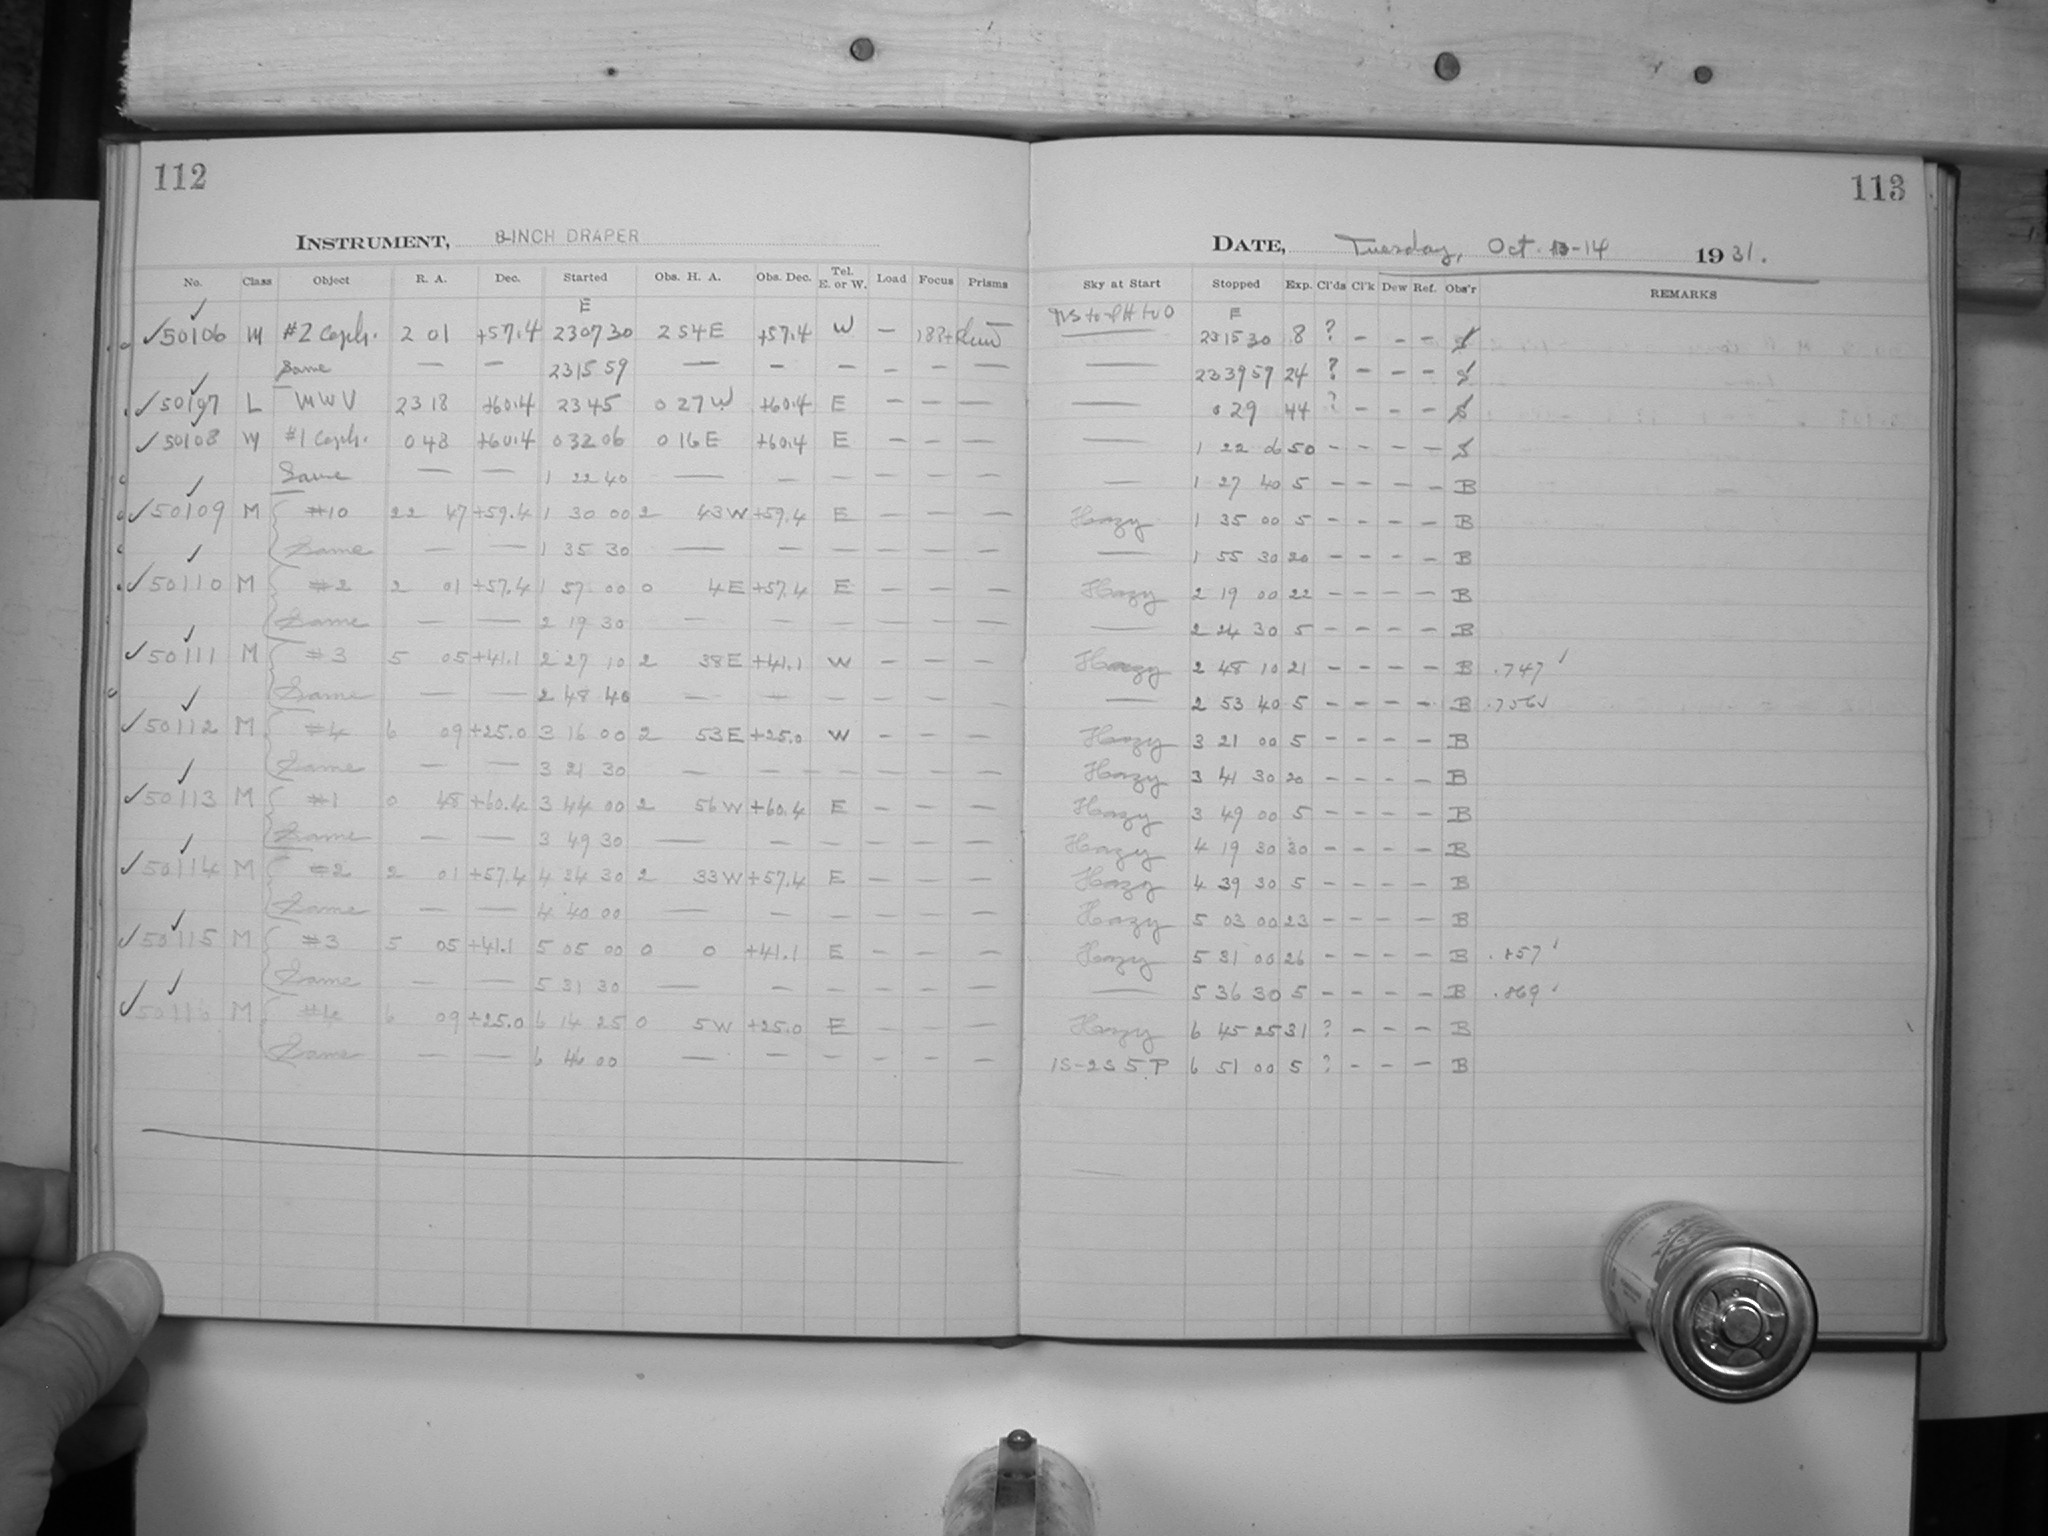 112
INSTRUMENT, 8-INCH DRAPER
No. Class Object R. A. Dec. Started Obs. H. A. Obs. Dec. Tel. E. or W. Load Focus Prisms
E
✓50106 M #2 Ceph. 2 01 +57.4 23 07 30 2 54 E +57.4 W —
Same — — 23 15 59 — — — — — —
✓50107 L MWV 23 18 +60.4 23 45 0 27 W +60.4 E — — —
✓50108 M #1 Ceph. 0 48 +60.4 0 32 06 0 16 E +60.4 E — — —
Same — — 1 22 40 — — — — — —
✓50109 M #10 22 47 +59.4 1 30 00 2 43 W +59.4 E — — —
Same — — 1 35 30 — — — — — —
✓50110 M #2 2 01 +57.4 1 57 00 0 4 E +57.4 E — — —
Same — — 2 19 30 — — — — — —
✓50111 M #3 5 05 +41.1 2 27 10 2 38 E +41.1 W — — —
Same — — 2 48 40 — — — — — —
✓50112 M #4 6 09 +25.0 3 16 00 2 53 E +25.0 W — — —
Same — — 3 21 30 — — — — — —
✓50113 M #1 0 48 +60.4 3 44 00 2 56 W +60.4 E — — —
Same — — 3 49 30 — — — — — —
✓50114 M #2 2 01 +57.4 4 34 30 2 33 W +57.4 E — — —
Same — — 4 40 00 — — — — — —
✓50115 M #3 5 05 +41.1 5 05 00 0 0 +41.1 E — — —
Same — — 5 31 30 — — — — — —
✓50116 M #4 6 09 +25.0 6 14 25 0 5 W +25.0 E — — —
Same — — 6 46 00 — — — — — —
113
DATE, Tuesday, Oct. 13-14 1931.
Sky at Start Stopped Exp. Cl'ds Cl'k Dew Ref. Obs'r REMARKS
E
23 15 30 8 ? — — —
— 23 39 59 24 ? — — —
— 0 29 44 ? — — —
— 1 22 06 50 — — — —
— 1 27 40 5 — — — — B
Hazy 1 35 00 5 — — — — B
— 1 55 30 20 — — — — B
Hazy 2 19 00 22 — — — — B
— 2 24 30 5 — — — — B
Hazy 2 48 10 21 — — — — B .747
— 2 53 40 5 — — — — B
Hazy 3 21 00 5 — — — — B
Hazy 3 41 30 20 — — — — B
Hazy 3 49 00 5 — — — — B
Hazy 4 19 30 30 — — — — B
Hazy 4 39 30 5 — — — — B
Hazy 5 03 00 23 — — — — B
Hazy 5 31 00 26 — — — — B .857
— 5 36 30 5 — — — — B .869
Hazy 6 45 25 31 ? — — — B
1S-2S 5 P 6 51 00 5 ? — — — B